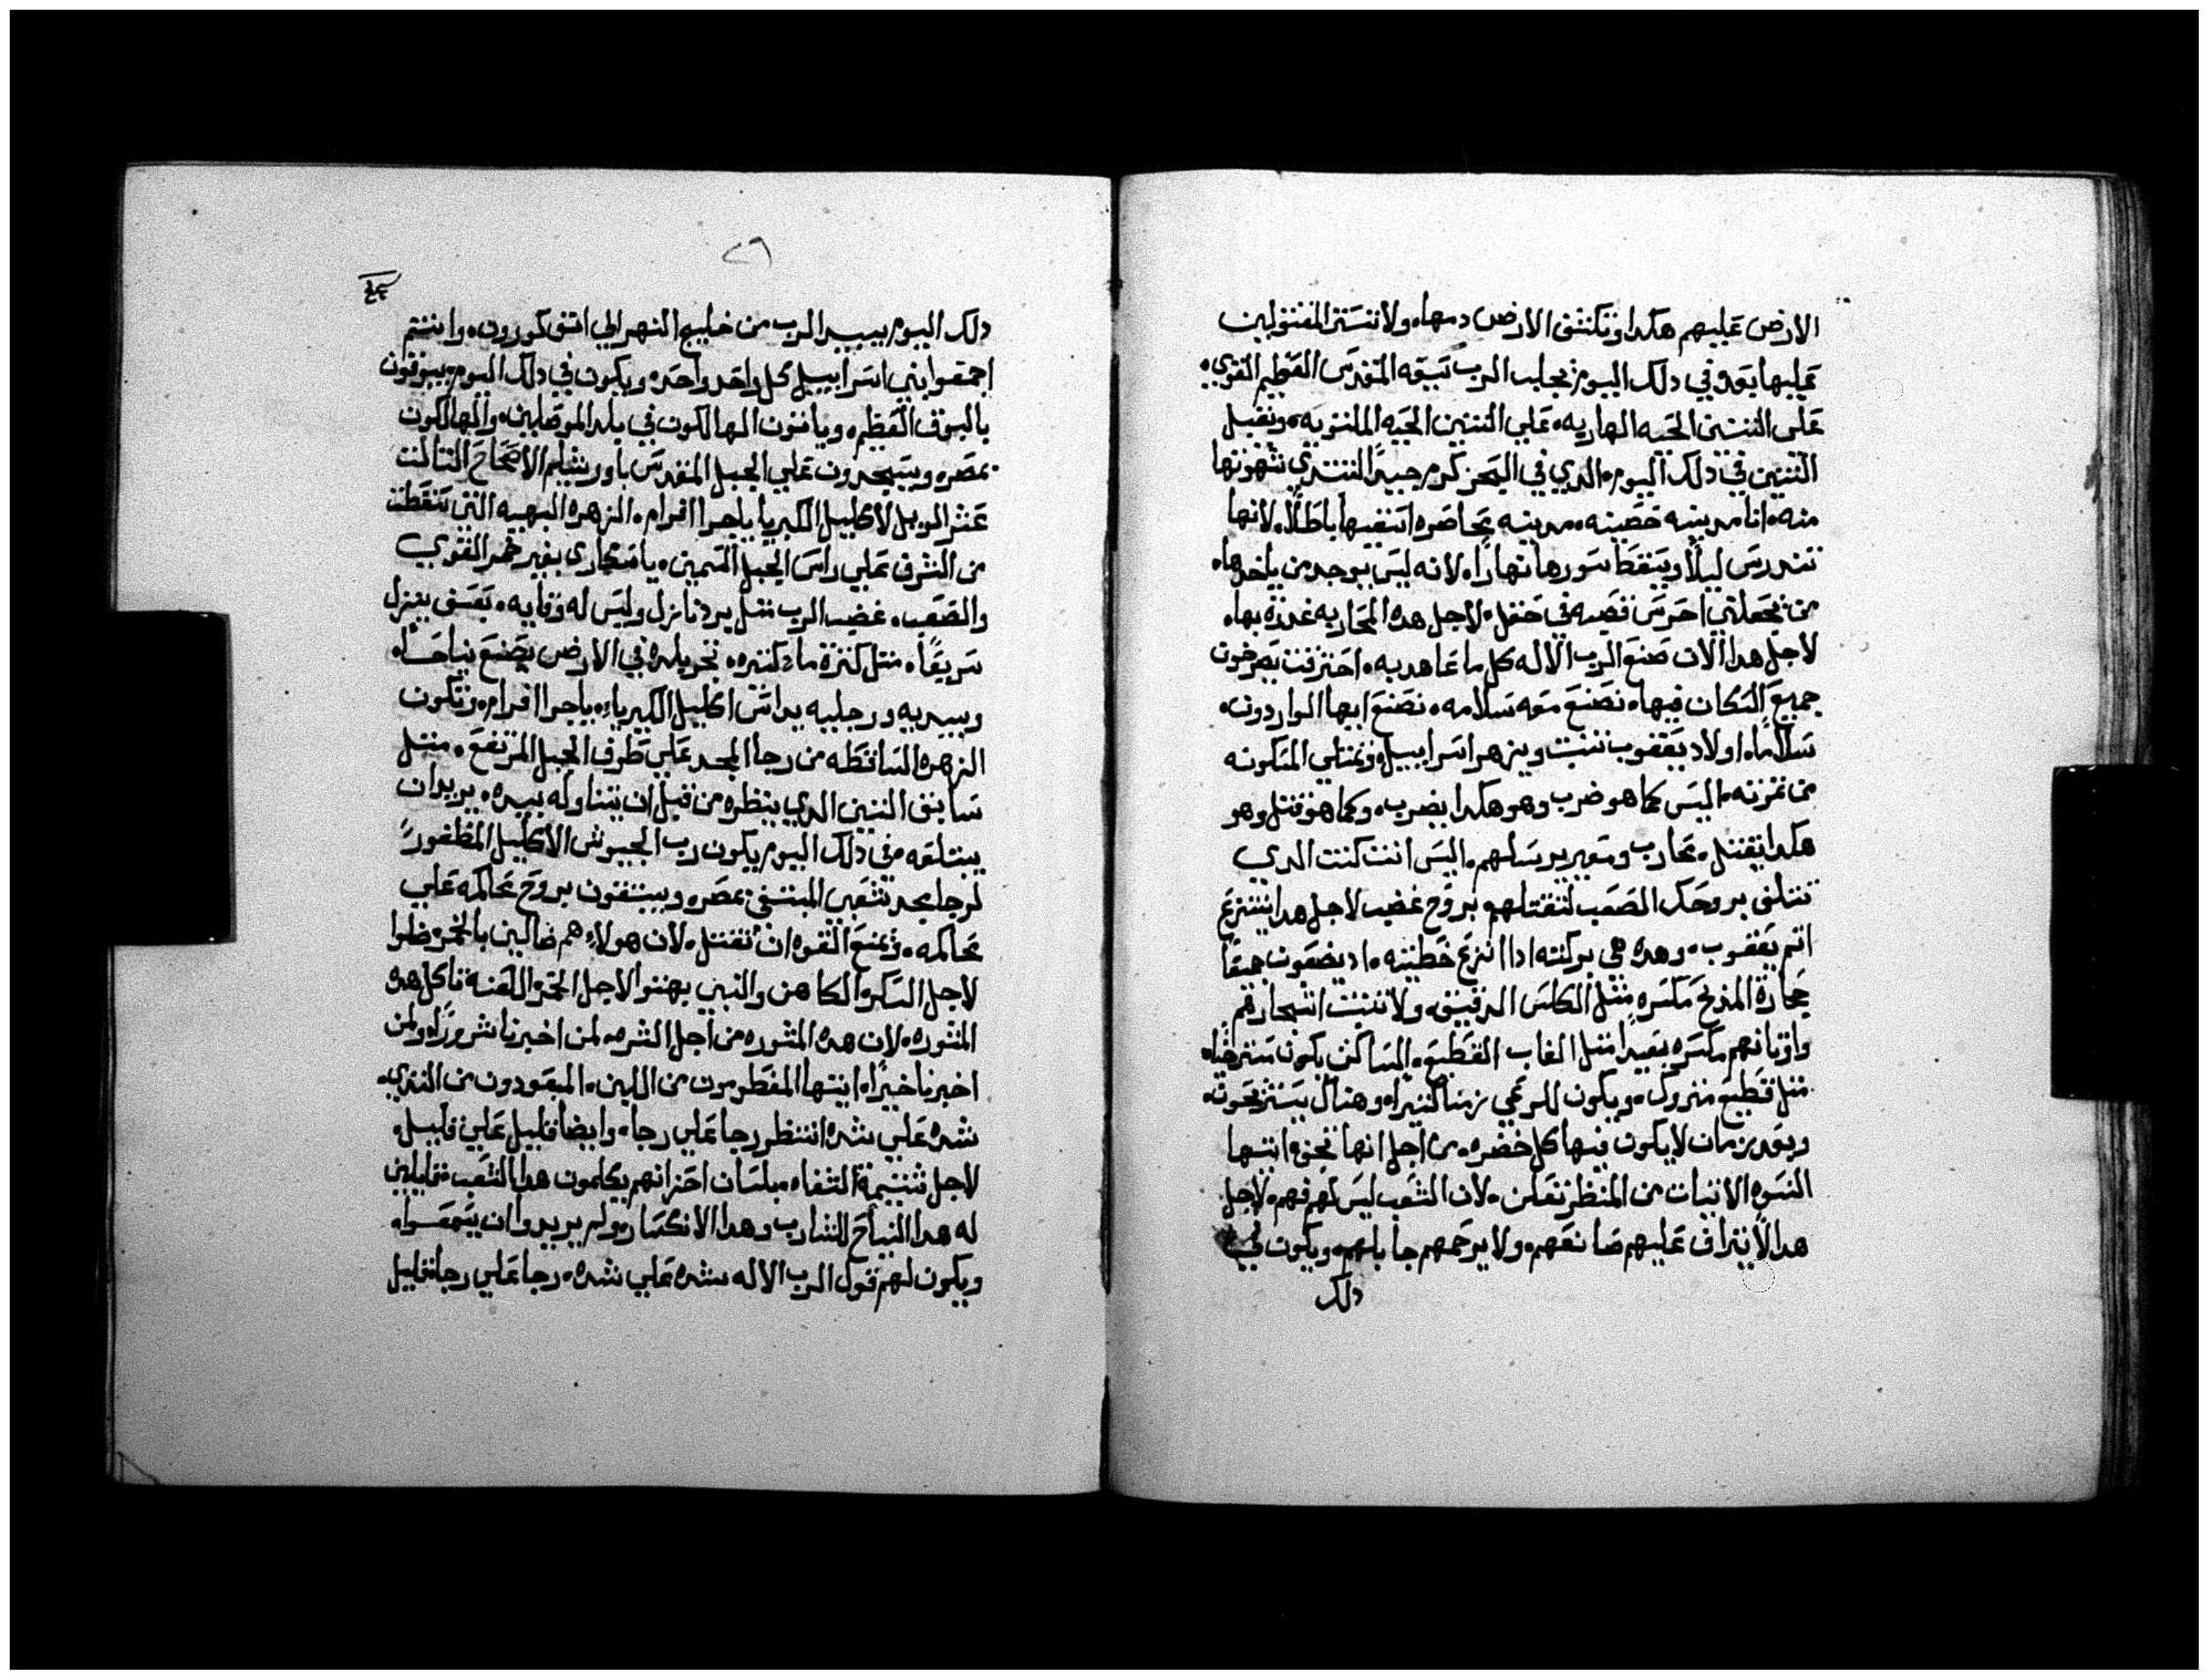 الارض عليهم هكدا وتكشف الارض دمها، ولا تستر المقتولين
عليها بعد، وفي دلك اليوم يجلب الرب سيفه المقدس العظيم القوي،
على التنين الحيه الهاربه، علي التنين الحيه الملتويه، ويقتل
التنين في دلك اليوم، الدي في البحر كرم جيدًا لتشتري شهوتها
منه، انا مدينه حصينه، مدينه محاصره اسقيها باطلًا، لانها
تندرس ليلًا ويسقط سورها نهارًا، لانه ليس يوجد من ياخدها،
من يجعلني احرس قصبه في حقل، لاجل هده المحاربه غدرة بها،
لاجل هدا الان صنع الرب الاله كل ما عاهد به، احترقت يصرخون
جميع السكان فيها، نصنع معه سلامه، نصنع ايها الواردون،
سلامًا، اولاد يعقوب تنبت ويزهر اسراييل، وتمتلي المسكونه
من تمرته، اليس كما هو ضرب وهو هكدا يضرب، وكما هو قتل وهو
هكدا يقتل، محارب ومعير يرسلهم، اليس انت كنت الدي
تتلف بروحك الصعب لتقتلهم بروح غضب لاجل هدا ينتزع
اتم يعقوب، وهده هي بركته ادا انزع خطيته، اد يضعون جميعًا
حجارة المدبح مكسره متل الكلس الدقيق، ولا تتبت اشجارهم
واوتانهم مكسره بعيدًا متل الغاب القطيع، المساكن يكون مسترخيًا،
متل قطيع متروك، ويكون للرعي زمنا كتيرا، وهناك يستريحون،
وبعد زمان لا يكون فيها كل خضره، من اجل انها تجف ايتها
النسوه الاتيات من المنظر تعلن، لان الشعب ليس لهم فهم، لاجل
هدا لا يتراف عليهم صانعهم، ولا يرحمهم جابلهم، ويكون في
دلك
٢٦
دلك اليوم يبيد الرب من خليج النهر الي افق كورون، وانتم
اجمعوا بني اسراييل كل واحد واحد، ويكون في دلك اليوم يبوقون
بالبوق العظيم، وياتون الهالكون في بلد الموصليين، والهالكون
بمصر، ويسجدون علي الجبل المقدس باورشليم الاصحاح التالت
عشر الويل لاكليل الكبريا ياجرا افرام، الزهره البهيه التي سقطت
من الشرف علي راس الجبل السمين، ياسكارى بغير خمر القوي
والصعب، غضب الرب متل برد نازل وليس له وقايه، بعسف ينزل
سريعًا، متل كترة ما دكتره، تجر بلده في الارض يصنع نياحًا،
وبيديه ورجليه يداس اكليل الكبرياء، ياجرا افرام، وتكون
الزهره الساقطه من رجا المجد علي طرف الجبل المرتفع، متل
سابق التين الدي ينظره من قبل ان يتناوله بيده، يريد ان
يبتلعه، في دلك اليوم يكون رب الجيوش الاكليل المظفورً
لرجا مجد شعبي المبتقي بمصر، ويبتقون بروح محاكمه علي
محاكمه، وتمنع القوه ان تقتل، لان هولاء هم ضالين بالخمر، ضلوا
لاجل السكر، الكاهن والنبي بهتوا لاجل الخمر، اللعنه تاكل هده
المشوره، لان هده المشوره من اجل الشره، لمن اخبرنا شرورًا، ولمن
اخبرنا خبرًا، ايتها المفطومون من اللبن، المبعودون من التدي،
شده علي شده انتظر رجا علي رجا، وايضا قليل علي قليل،
لاجل شتيمة الشفاه، بلسان احزانهم يكلمون هدا الشعب، قايلين
له هدا النياح للشارب وهدا الانكسار، ولم يريدوا ان يسمعوا،
ويكون لهم قول الرب الاله شده علي شده، رجا علي رجا، قليل